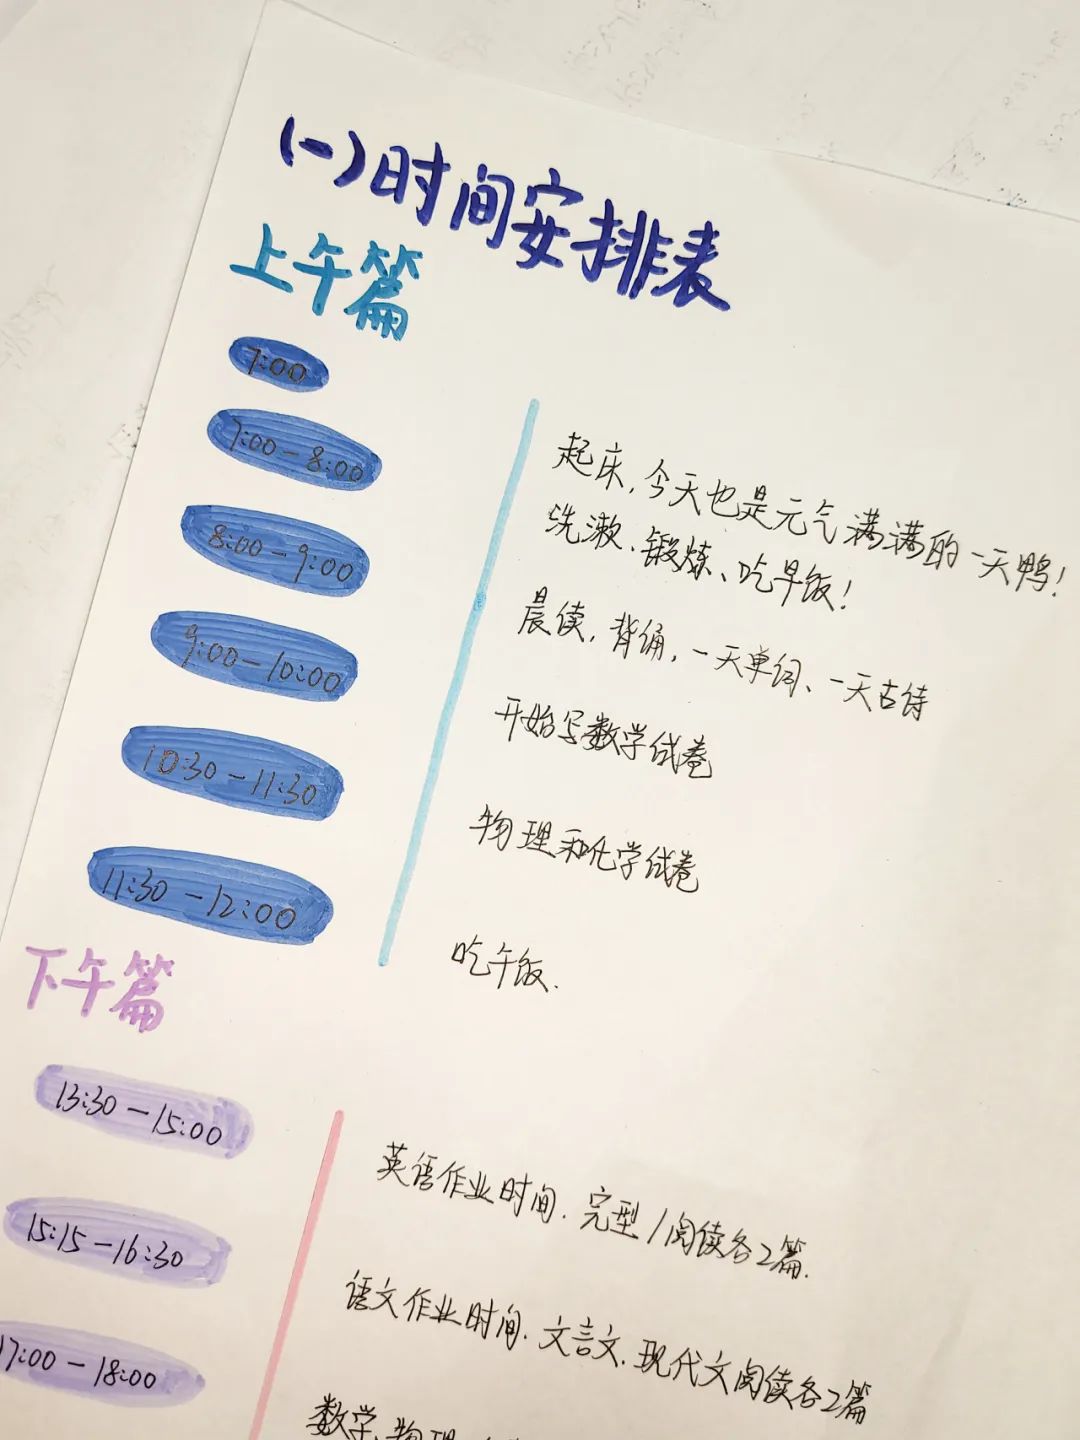 (一)时间安排表
上午篇
7:00
起床,今天也是元气满满的一天鸭!
7:00-8:00
洗漱、锻炼、吃早饭!
8:00-9:00
晨读,背诵,一天单词、一天古诗
9:00-10:00
开始写数学试卷
10:30-11:30
物理和化学试卷
11:30-12:00
吃午饭、
下午篇
13:30-15:00
英语作业时间.完型/阅读各2篇.
15:15-16:30
语文作业时间.文言文.现代文阅读各2篇
17:00-18:00
数学、物理